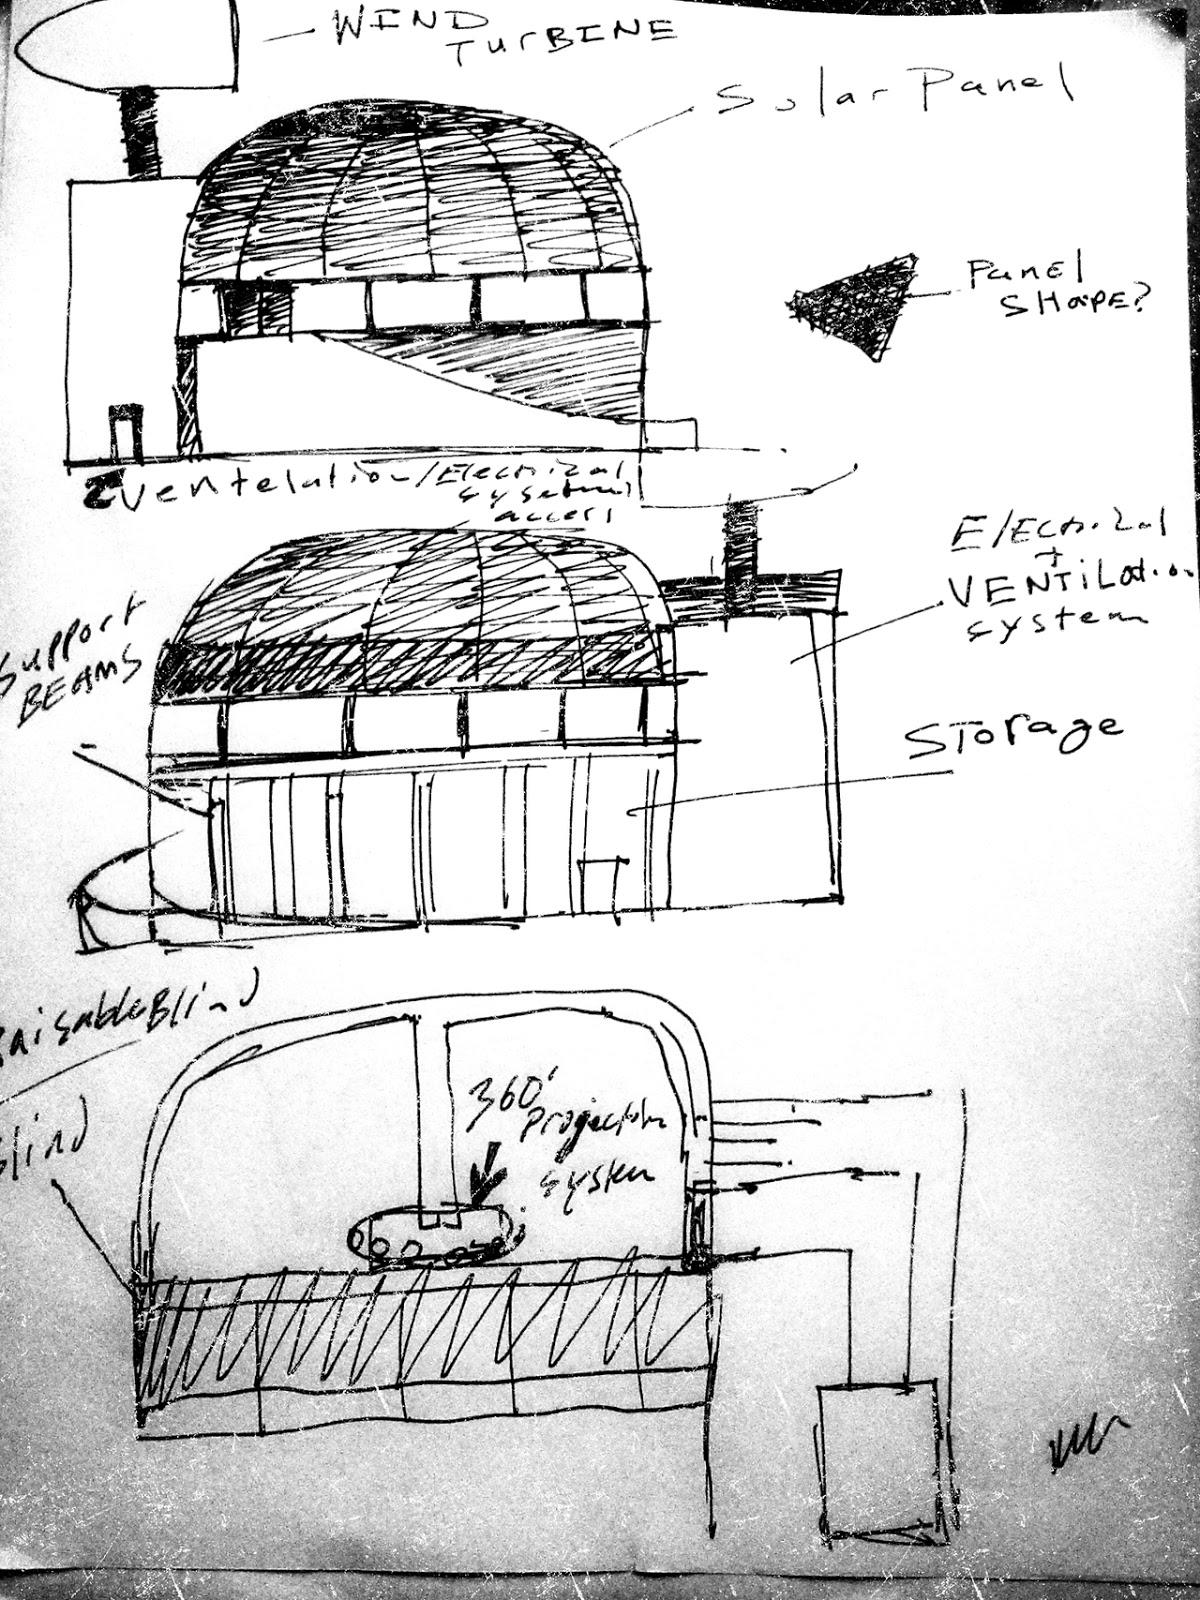 WIND
TURBINE
Solar Panel
PANEL
SHAPE?
Ventelation/Electrical
access
Electrical
+
VENTILation
system
Support
BEAMS
STorage
Raisable Blind
Blind
360°
Projection
system